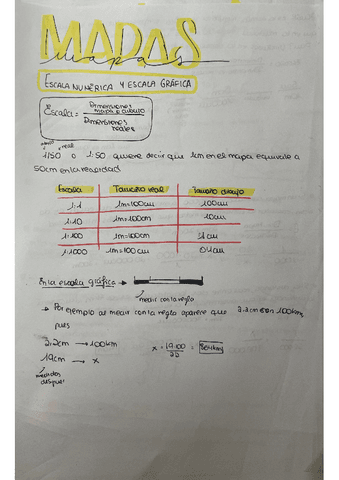 MAPAS
mapas
ESCALA NUMÉRICA Y ESCALA GRÁFICA
Escala = Dimensiones mapa o dibujo / Dimensiones reales
mapa real
1/50 o 1:50 quiere decir que 1cm en el mapa equivale a
50cm en la realidad.
Escala Tamaño real Tamaño dibujo
1:1 1m=100cm 100cm
1:10 1m=100cm 10cm
1:100 1m=100cm 1cm
1:1000 1m=100cm 0'1cm
En la escala gráfica →
medir con la regla
→ Por ejemplo al medir con la regla aparece que 2.2cm son 100km,
pues
2.2cm → 100km x = 19·100/2.2
19cm → x
medidos
después